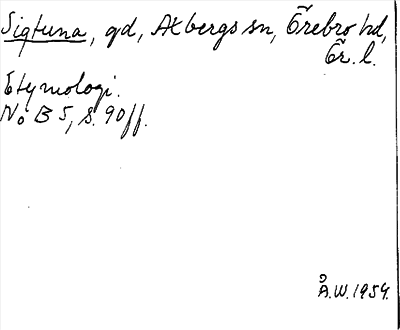 Sigtuna, gd, Axbergs sn, Örebro hd,
Ör. l.
Etymologi.
No B 5, s. 90 ff.
Å.W. 1954.